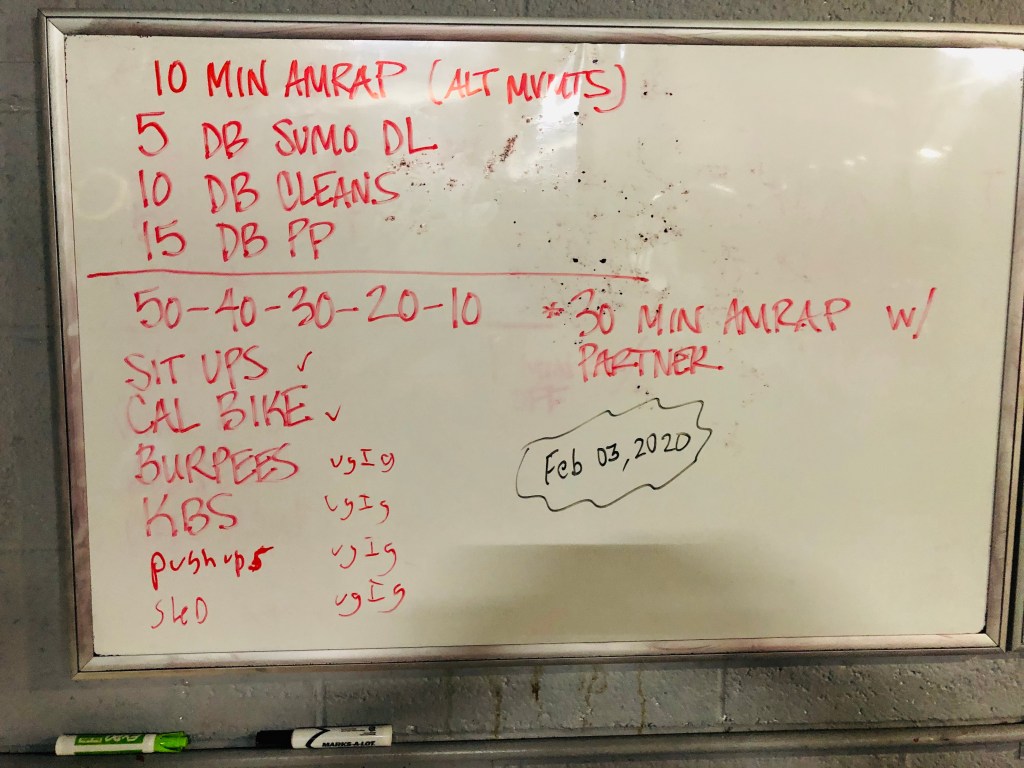 10 MIN AMRAP (ALT MVMTS)
5 DB SUMO DL
10 DB CLEANS
15 DB PP
50-40-30-20-10
SIT UPS ✓
CAL BIKE ✓
BURPEES
KBS
pushups
SleD
*30 MIN AMRAP W/
PARTNER
Feb 03, 2020
MARKS-A-LOT